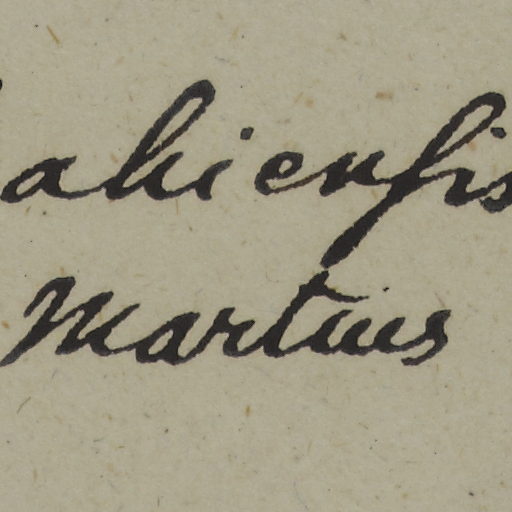 ahiensis
Martius